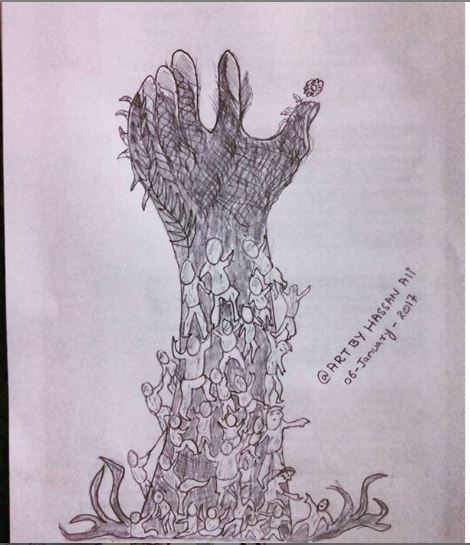 @ ART BY HASSAN Ali
06-January-2017